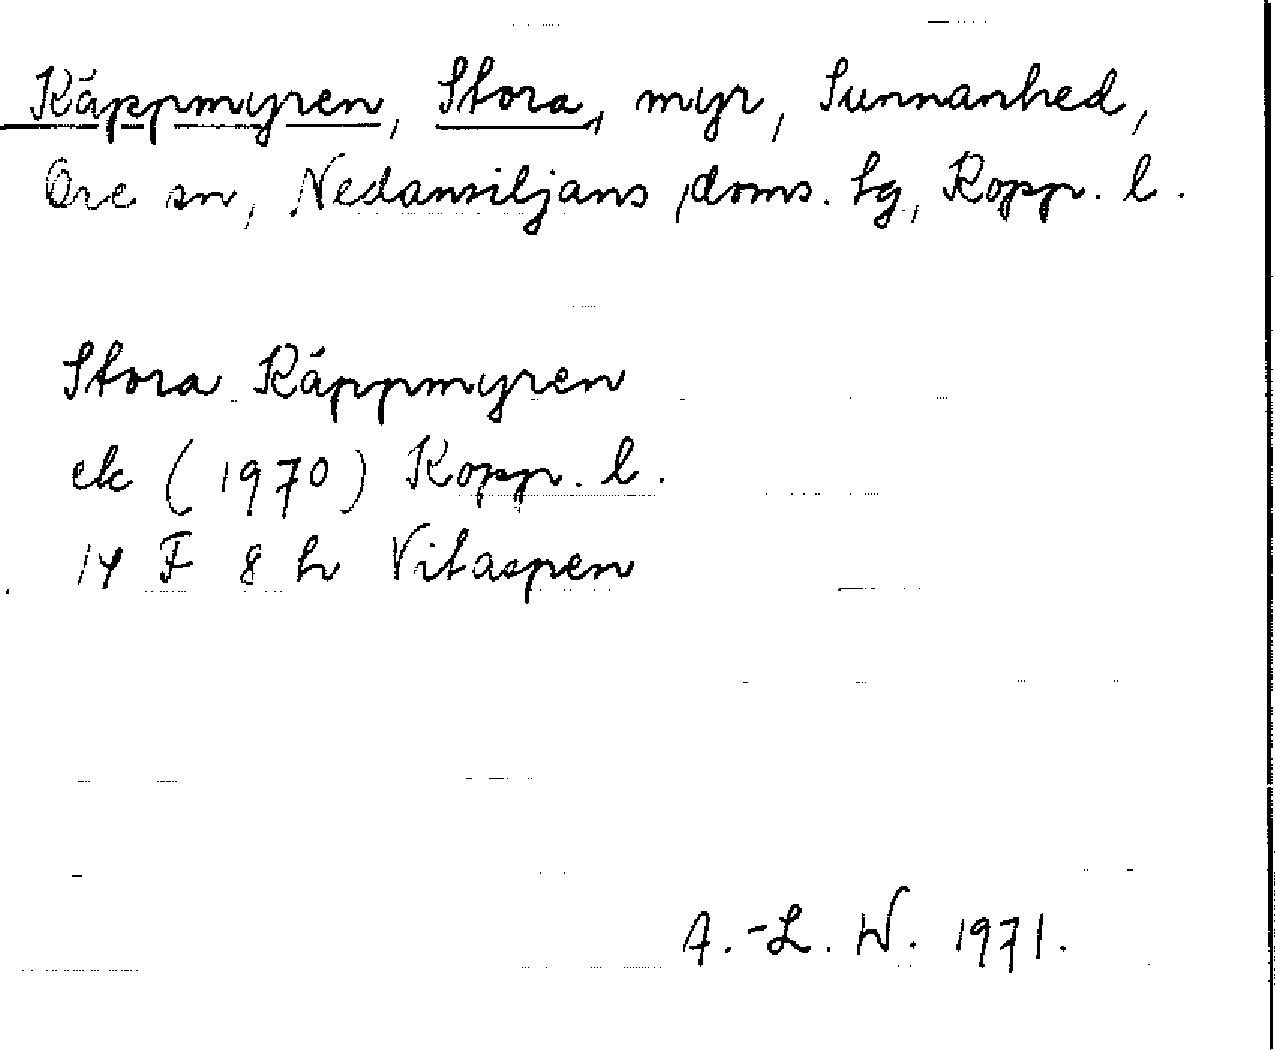 Käppmyren, Stora, myr, Sunnanhed,
Ore sn, Nedansiljans doms. tg, Kopp. l.
Stora Käppmyren
ek (1970) Kopp. l.
14 F 8 h Vitaspen
A.-L. W. 1971.